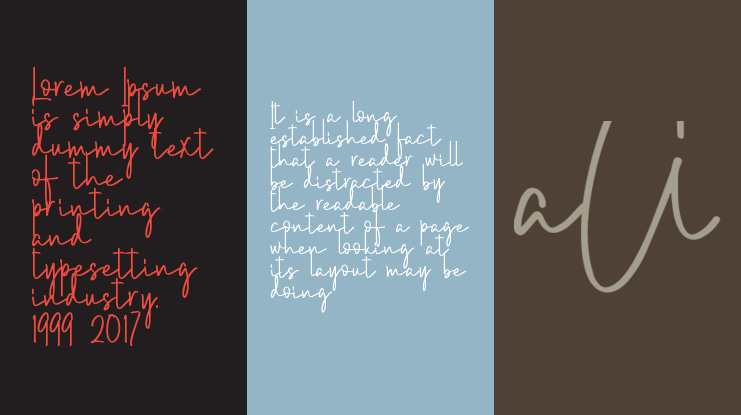 Lorem Ipsum
is simply
dummy text
of the
printing
and
typesetting
industry.
1999 2017
It is a long
established fact
that a reader will
be distracted by
the readable
content of a page
when looking at
its layout may be
doing
ali